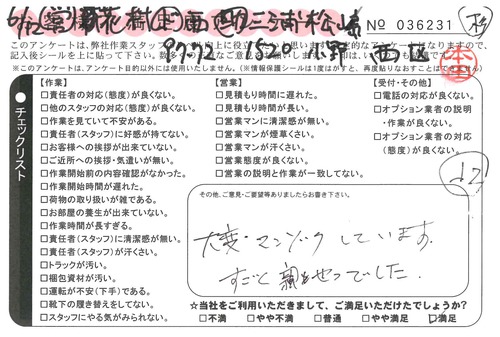 No 036231
このアンケートは、弊社作業スタッフ
記入後シールを上に貼って下さい。
9772 1520 小野 西区
※このアンケートは、アンケート目的以外には使用いたしません。(※情報保護シールは1度はがすと、再度貼りなおすことは
チェックリスト
【作業】
□責任者の対応(態度)が良くない。
□他のスタッフの対応(態度)が良くない。
□作業を見ていて不安がある。
□責任者(スタッフ)に好感が持てない。
□お客様への挨拶が出来ていない。
□ご近所への挨拶・気遣いが無い。
□作業開始前の内容確認がなかった。
□作業開始時間が遅れた。
□荷物の取り扱いが雑である。
□お部屋の養生が出来ていない。
□作業時間が長すぎる。
□責任者(スタッフ)に清潔感が無い。
□責任者(スタッフ)が汗くさい。
□トラックが汚い。
□梱包資材が汚い。
□運転が不安(下手)である。
□靴下の履き替えをしてない。
□スタッフにやる気がみられない。
【営業】
□見積もり時間に遅れた。
□見積もり時間が長い。
□営業マンに清潔感が無い。
□営業マンが煙草くさい。
□営業マンが汗くさい。
□営業態度が良くない。
□営業の説明と作業が一致してない。
【受付・その他】
□電話の対応が良くない。
□オプション業者の説明
・作業が良くない。
□オプション業者の対応
(態度)が良くない。
その他、ご意見・ご要望等ありましたらお書き下さい。
大変・マンゾクしています。
すごく親せつでした。
☆当社をご利用いただきまして、ご満足いただけたでしょうか?
□不満 □やや不満 □普通 □やや満足 ☑満足